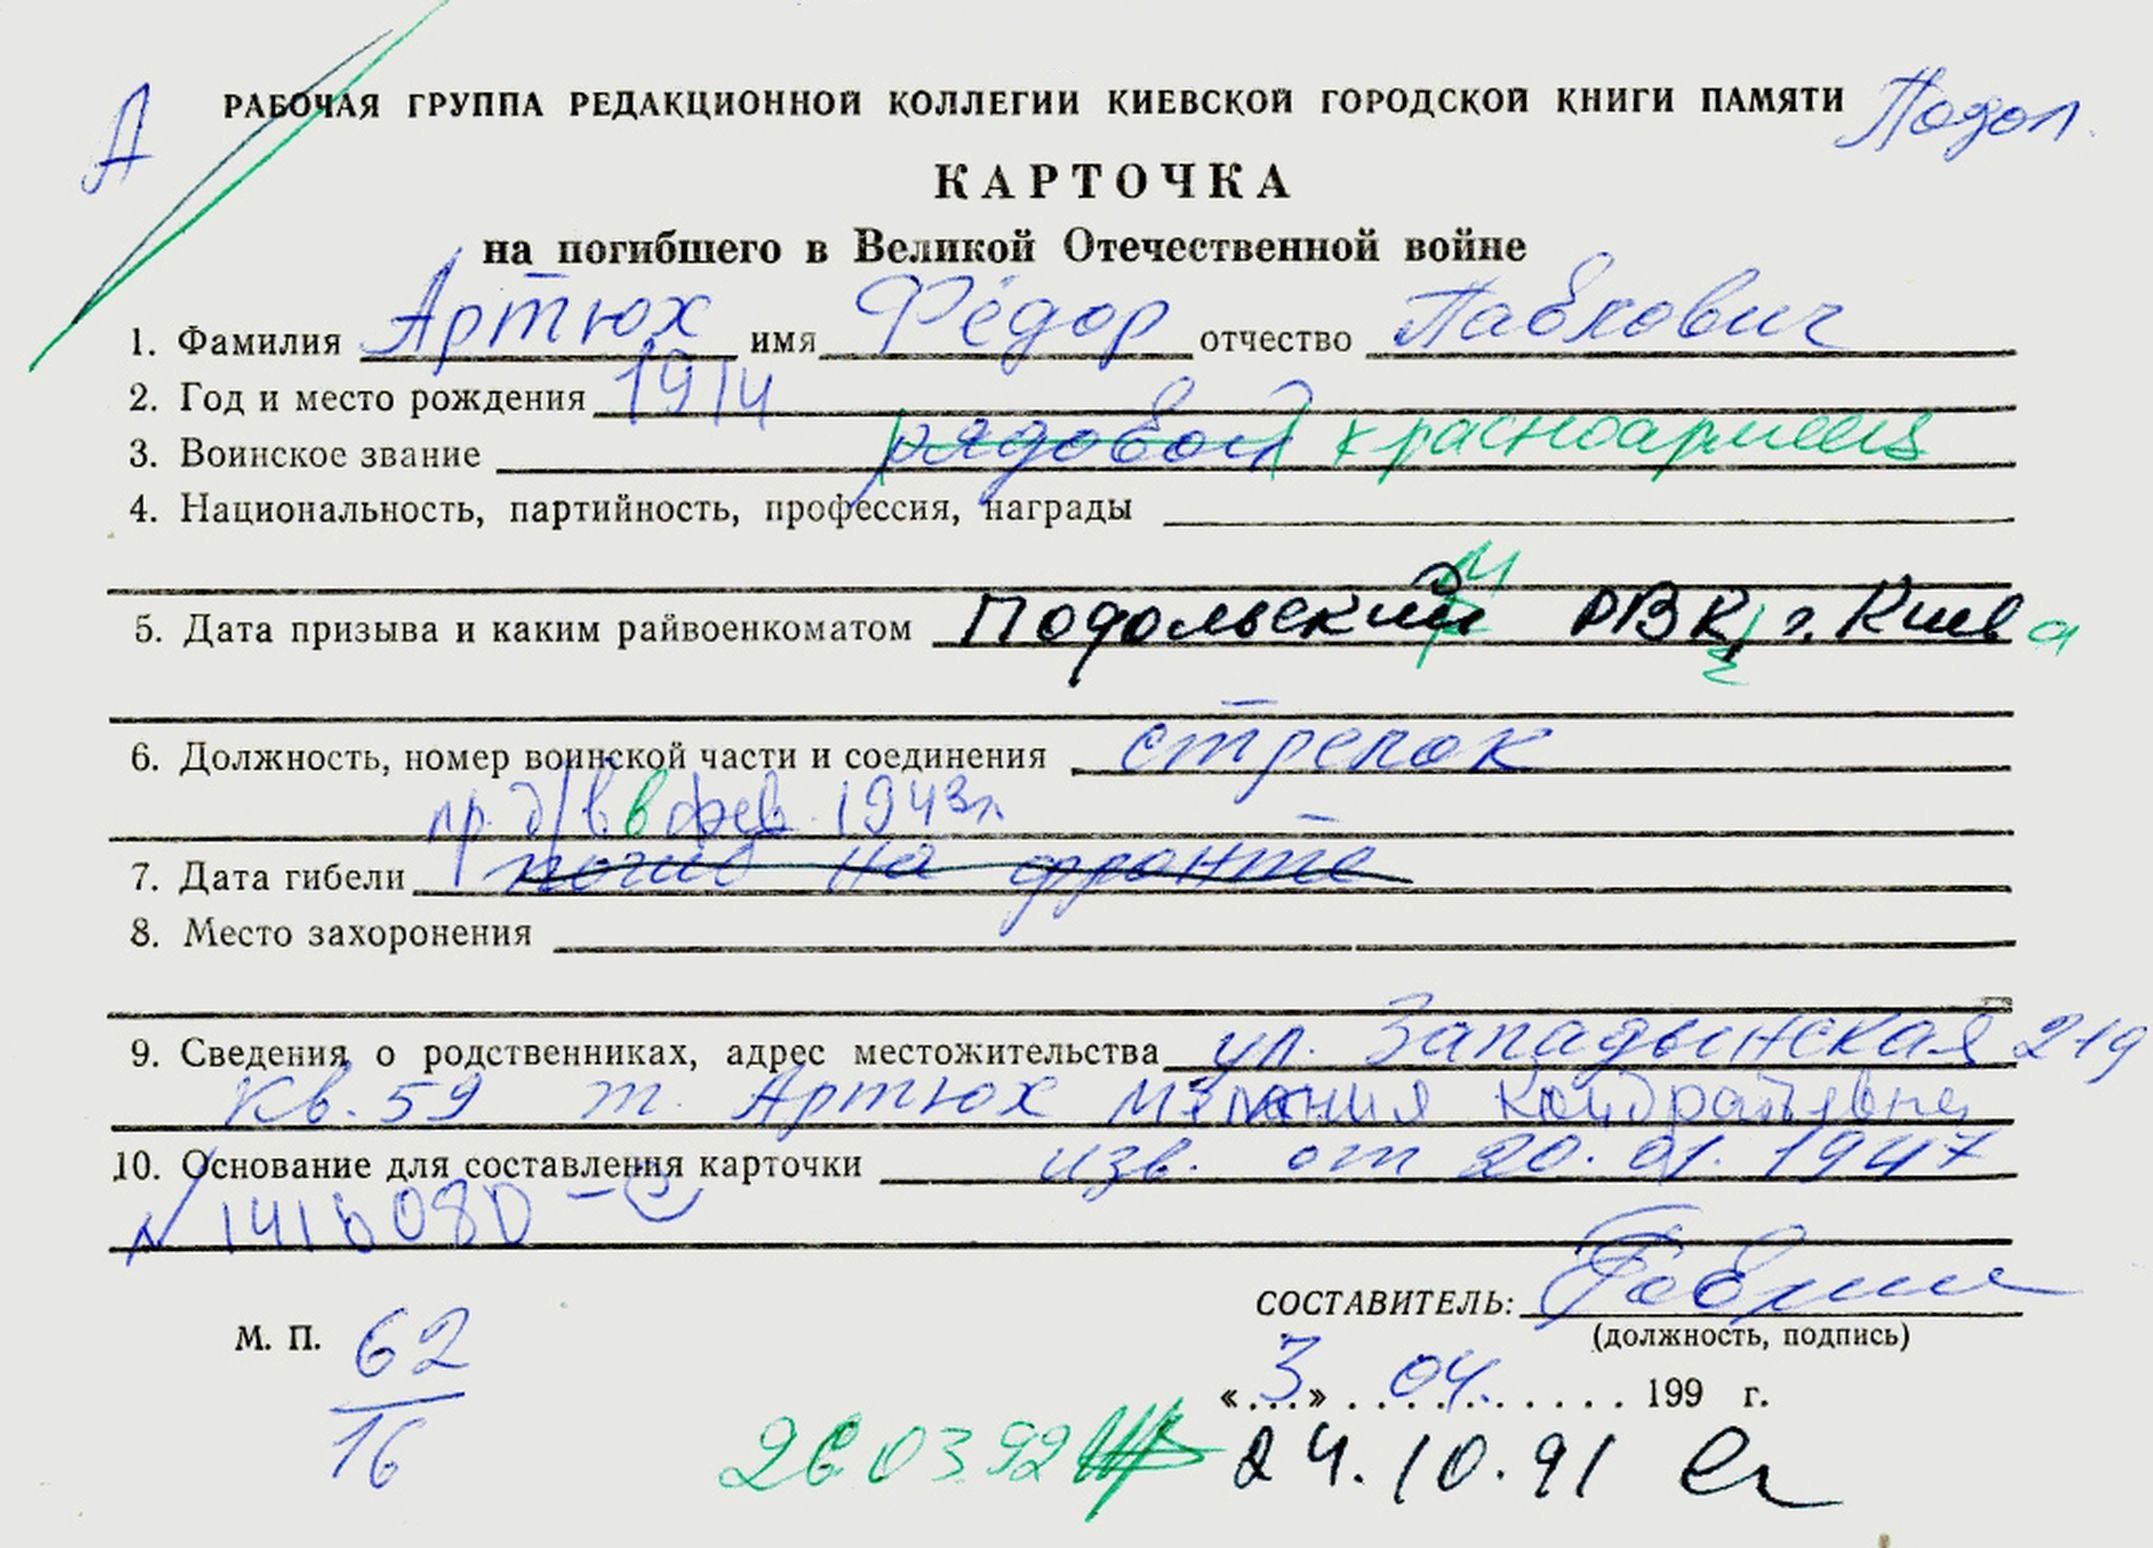 А
РАБОЧАЯ ГРУППА РЕДАКЦИОННОЙ КОЛЛЕГИИ КИЕВСКОЙ ГОРОДСКОЙ КНИГИ ПАМЯТИ Подол.
КАРТОЧКА
на погибшего в Великой Отечественной войне
1. Фамилия Артюх имя Фёдор отчество Павлович
2. Год и место рождения 1914
3. Воинское звание рядовой красноармеец
4. Национальность, партийность, профессия, награды
5. Дата призыва и каким райвоенкоматом Подольский РВК г. Киева
6. Должность, номер воинской части и соединения стрелок
пр. б/в в фев. 1943г.
7. Дата гибели погиб на фронте
8. Место захоронения
9. Сведения о родственниках, адрес местожительства ул. Западынская 2-19
кв. 59 т. Артюх Кондратьевна
10. Основание для составления карточки изв. от 20.01.1947
N 1416080
СОСТАВИТЕЛЬ:
(должность, подпись)
М. П. 62
16
«3» 04. 199 г.
260392 24.10.91